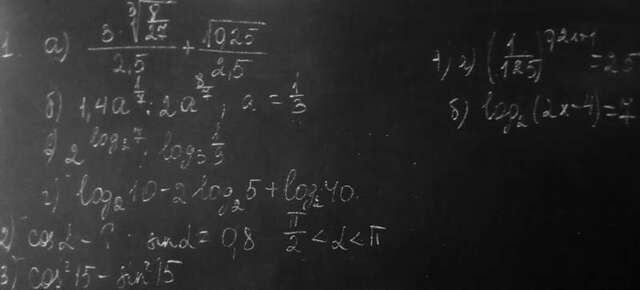 1. а) (3·∛(8/27))/2,5 + √1025/2,5
б) 1,4a^(1/7) : 2a^(8/7), a = 1/3
в) 2^(log₂7) · log₃ 1/3
г) log₂10 - 2 log₂5 + log₂40
2) cos α - ? sin α = 0,8 π/2 < α < π
3) cos²15 - sin²15
4) а) (1/125) = 25
б) log₂(2x-4) = 7